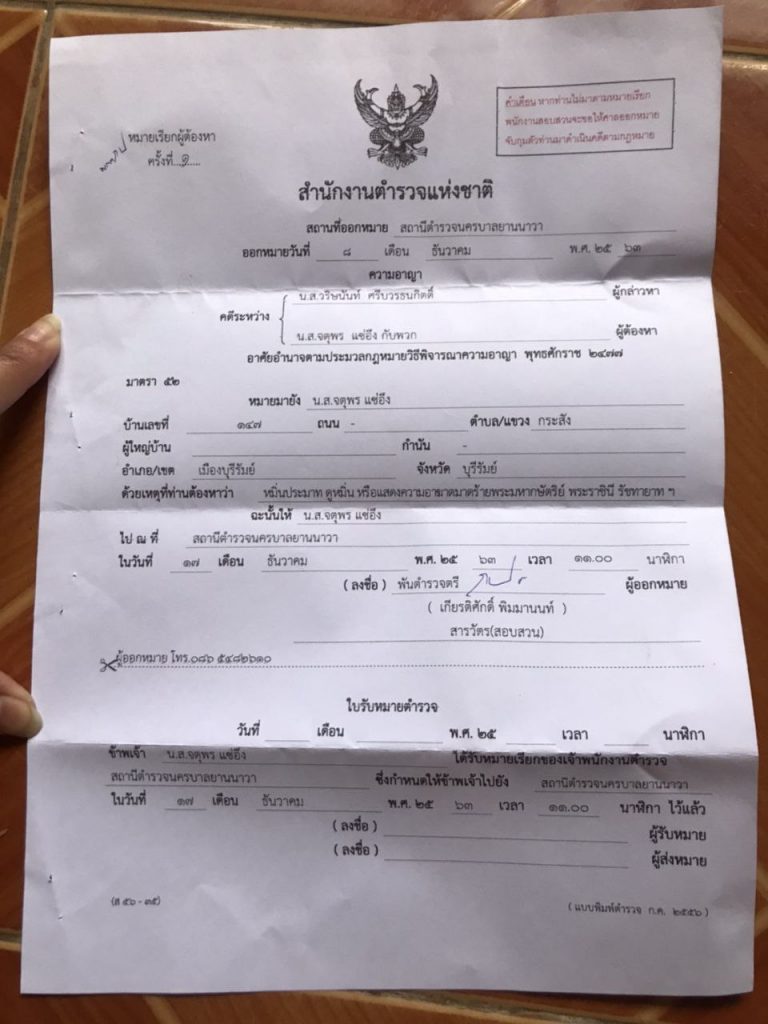 หมายเรียกผู้ต้องหา
ครั้งที่...๑.....
คำเตือน หากท่านไม่มาตามหมายเรียก
พนักงานสอบสวนจะขอให้ศาลออกหมาย
จับกุมตัวท่านมาดำเนินคดีตามกฎหมาย
สำนักงานตำรวจแห่งชาติ
สถานที่ออกหมาย สถานีตำรวจนครบาลยานนาวา
ออกหมายวันที่ ๘ เดือน ธันวาคม พ.ศ. ๒๕ ๖๓
ความอาญา
น.ส.วริษนันท์ ศรีบวรธนกิตติ์ ผู้กล่าวหา
คดีระหว่าง
น.ส.จตุพร แซ่อึง กับพวก ผู้ต้องหา
อาศัยอำนาจตามประมวลกฎหมายวิธีพิจารณาความอาญา พุทธศักราช ๒๔๗๗
มาตรา ๕๒
หมายมายัง น.ส.จตุพร แซ่อึง
บ้านเลขที่ ๑๔๗ ถนน - ตำบล/แขวง กระสัง
ผู้ใหญ่บ้าน กำนัน -
อำเภอ/เขต เมืองบุรีรัมย์ จังหวัด บุรีรัมย์
ด้วยเหตุที่ท่านต้องหาว่า หมิ่นประมาท ดูหมิ่น หรือแสดงความอาฆาตมาดร้ายพระมหากษัตริย์ พระราชินี รัชทายาท ฯ
ฉะนั้นให้ น.ส.จตุพร แซ่อึง
ไป ณ ที่ สถานีตำรวจนครบาลยานนาวา
ในวันที่ ๑๗ เดือน ธันวาคม พ.ศ. ๒๕ ๖๓ เวลา ๑๑.๐๐ นาฬิกา
( ลงชื่อ ) พันตำรวจตรี ผู้ออกหมาย
( เกียรติศักดิ์ พิมมานนท์ )
สารวัตร(สอบสวน)
ผู้ออกหมาย โทร.๐๘๖ ๕๔๘๒๖๑๐
ใบรับหมายตำรวจ
วันที่ เดือน พ.ศ. ๒๕ เวลา นาฬิกา
ข้าพเจ้า น.ส.จตุพร แซ่อึง ได้รับหมายเรียกของเจ้าพนักงานตำรวจ
สถานีตำรวจนครบาลยานนาวา ซึ่งกำหนดให้ข้าพเจ้าไปยัง สถานีตำรวจนครบาลยานนาวา
ในวันที่ ๑๗ เดือน ธันวาคม พ.ศ. ๒๕ ๖๓ เวลา ๑๑.๐๐ นาฬิกา ไว้แล้ว
( ลงชื่อ ) ผู้รับหมาย
( ลงชื่อ ) ผู้ส่งหมาย
(ส ๕๖ - ๓๕)
( แบบพิมพ์ตำรวจ ก.ค. ๒๕๕๖ )